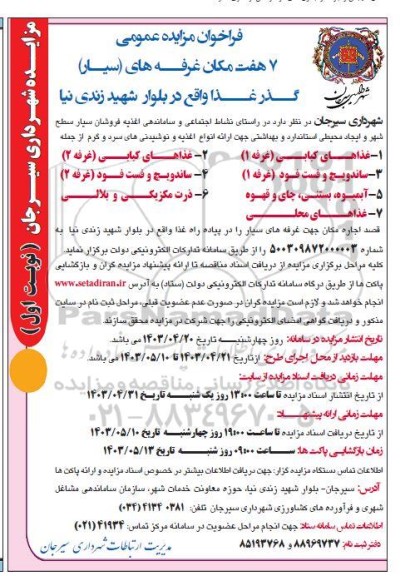 فراخوان مزایده عمومی
۷ هفت مکان غرفه های (سیار)
گذر غذا واقع در بلوار شهید زندی نیا
مزایده شهرداری سیرجان (نوبت اول)
شهرداری سیرجان در نظر دارد در راستای نشاط اجتماعی و ساماندهی اغذیه فروشان سیار سطح
شهر و ایجاد محیطی استاندارد و بهداشتی جهت ارائه انواع اغذیه و نوشیدنی های سرد و گرم از جمله
۱-غذاهای کبابی (غرفه ۱) ۲- غذاهای کبابی (غرفه ۲)
۳-ساندویچ و فست فود (غرفه ۱) ۴- ساندویچ و فست فود (غرفه ۲)
۵-آبمیوه، بستنی، چای و قهوه ۶- ذرت مکزیکی و بلالی
۷-غذاهای محلی
قصد اجاره مکان جهت غرفه های سیار را در پیاده راه غذا واقع در بلوار شهید زندی نیا به
شماره ۵۰۰۳۰۹۸۷۲۰۰۰۰۰۳ را از طریق سامانه تدارکات الکترونیکی دولت برگزار نماید.
کلیه مراحل برگزاری مزایده از دریافت اسناد مناقصه تا ارائه پیشنهاد مزایده گران و بازگشایی
پاکت ها از طریق درگاه سامانه تدارکات الکترونیکی دولت (ستاد) به آدرس www.setadiran.ir
انجام خواهد شد و لازم است مزایده گران در صورت عدم عضویت قبلی، مراحل ثبت نام در سایت
مذکور و دریافت گواهی امضای الکترونیکی را جهت شرکت در مزایده محقق سازند.
تاریخ انتشار مزایده در سامانه: روز چهارشنبه تاریخ ۱۴۰۳/۰۴/۲۰ می باشد.
مهلت بازدید از محل اجرای طرح: از تاریخ ۱۴۰۳/۰۴/۲۱ تا ۱۴۰۳/۰۵/۱۰ می باشد.
مهلت زمانی دریافت اسناد مزایده از سایت:
از تاریخ انتشار اسناد مزایده تا ساعت ۱۳:۰۰ روز یک شنبه تاریخ ۱۴۰۳/۰۴/۳۱
مهلت زمانی ارائه پیشنهاد:
از تاریخ دریافت اسناد مزایده تا ساعت ۱۹:۰۰ روز چهارشنبه تاریخ ۱۴۰۳/۰۵/۱۰
زمان بازگشایی پاکت ها: ساعت ۰۹:۰۰ روز شنبه تاریخ ۱۴۰۳/۰۵/۱۳
اطلاعات تماس دستگاه مزایده گزار: جهت دریافت اطلاعات بیشتر در خصوص اسناد مزایده و ارائه پاکت ها
آدرس: سیرجان- بلوار شهید زندی نیا، حوزه معاونت خدمات شهر، سازمان ساماندهی مشاغل
شهری و فرآورده های کشاورزی شهرداری سیرجان تلفن: ۰۳۸۱ ۴۱۳۴ (۰۳۴)
اطلاعات تماس سامانه ستاد: جهت انجام مراحل عضویت در سامانه مرکز تماس: ۴۱۹۳۴ (۰۲۱)
دفتر ثبت نام: ۸۸۹۶۹۷۳۷ و ۸۵۱۹۳۷۶۸
مدیریت ارتباطات شهرداری سیرجان